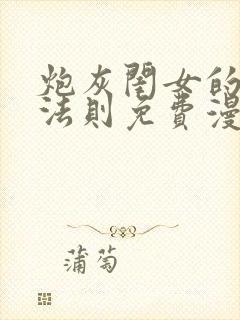 炮灰閨女的
法則免費漫
蒲萄